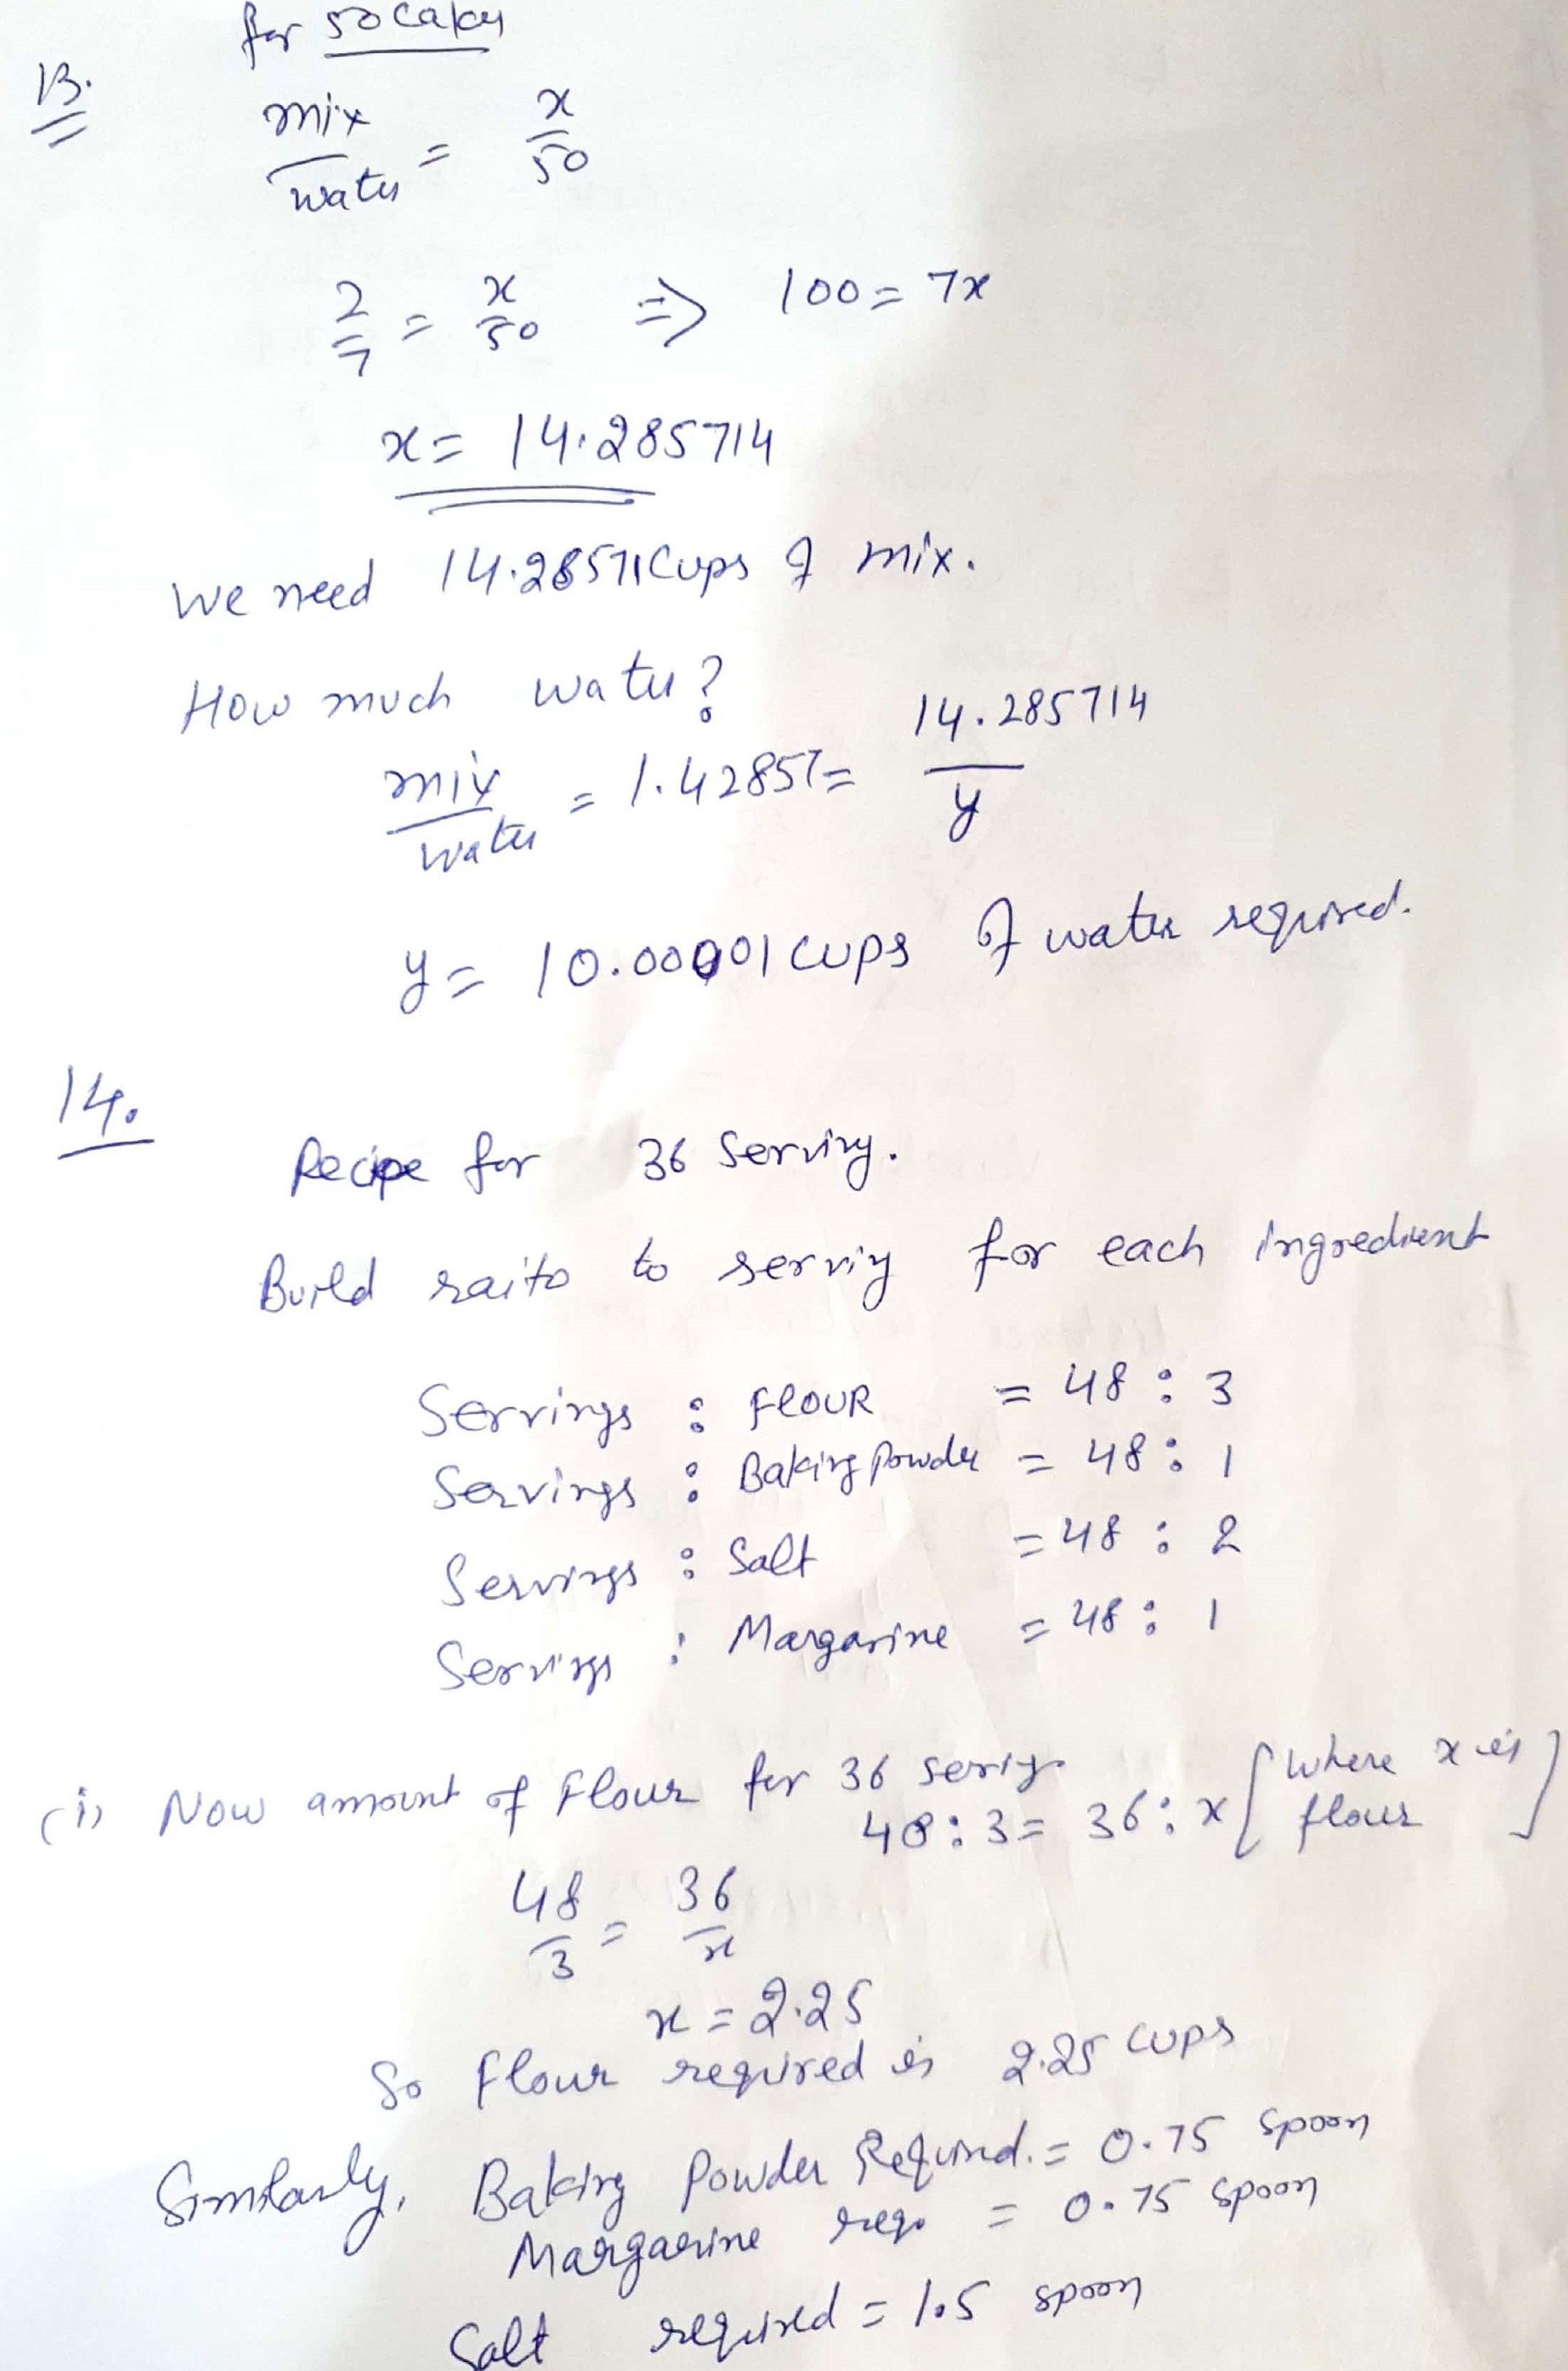 for 50 cakes
13.
mix/water = x/50
2/7 = x/50 => 100 = 7x
x = 14.285714
we need 14.28571 cups of mix.
How much water?
mix/water = 1.42857 = 14.285714/y
y = 10.00001 cups of water required.
14.
Recipe for 36 Serving.
Build raito to serving for each ingredient
Servings : FLOUR = 48 : 3
Servings : Baking Powder = 48 : 1
Servings : Salt = 48 : 2
Servings : Margarine = 48 : 1
(i) Now amount of Flour for 36 serving
48 : 3 = 36 : x [where x is flour]
48/3 = 36/x
x = 2.25
So Flour required is 2.25 cups
Similarly, Baking Powder Required. = 0.75 spoon
Margarine req. = 0.75 spoon
Salt required = 1.5 spoon